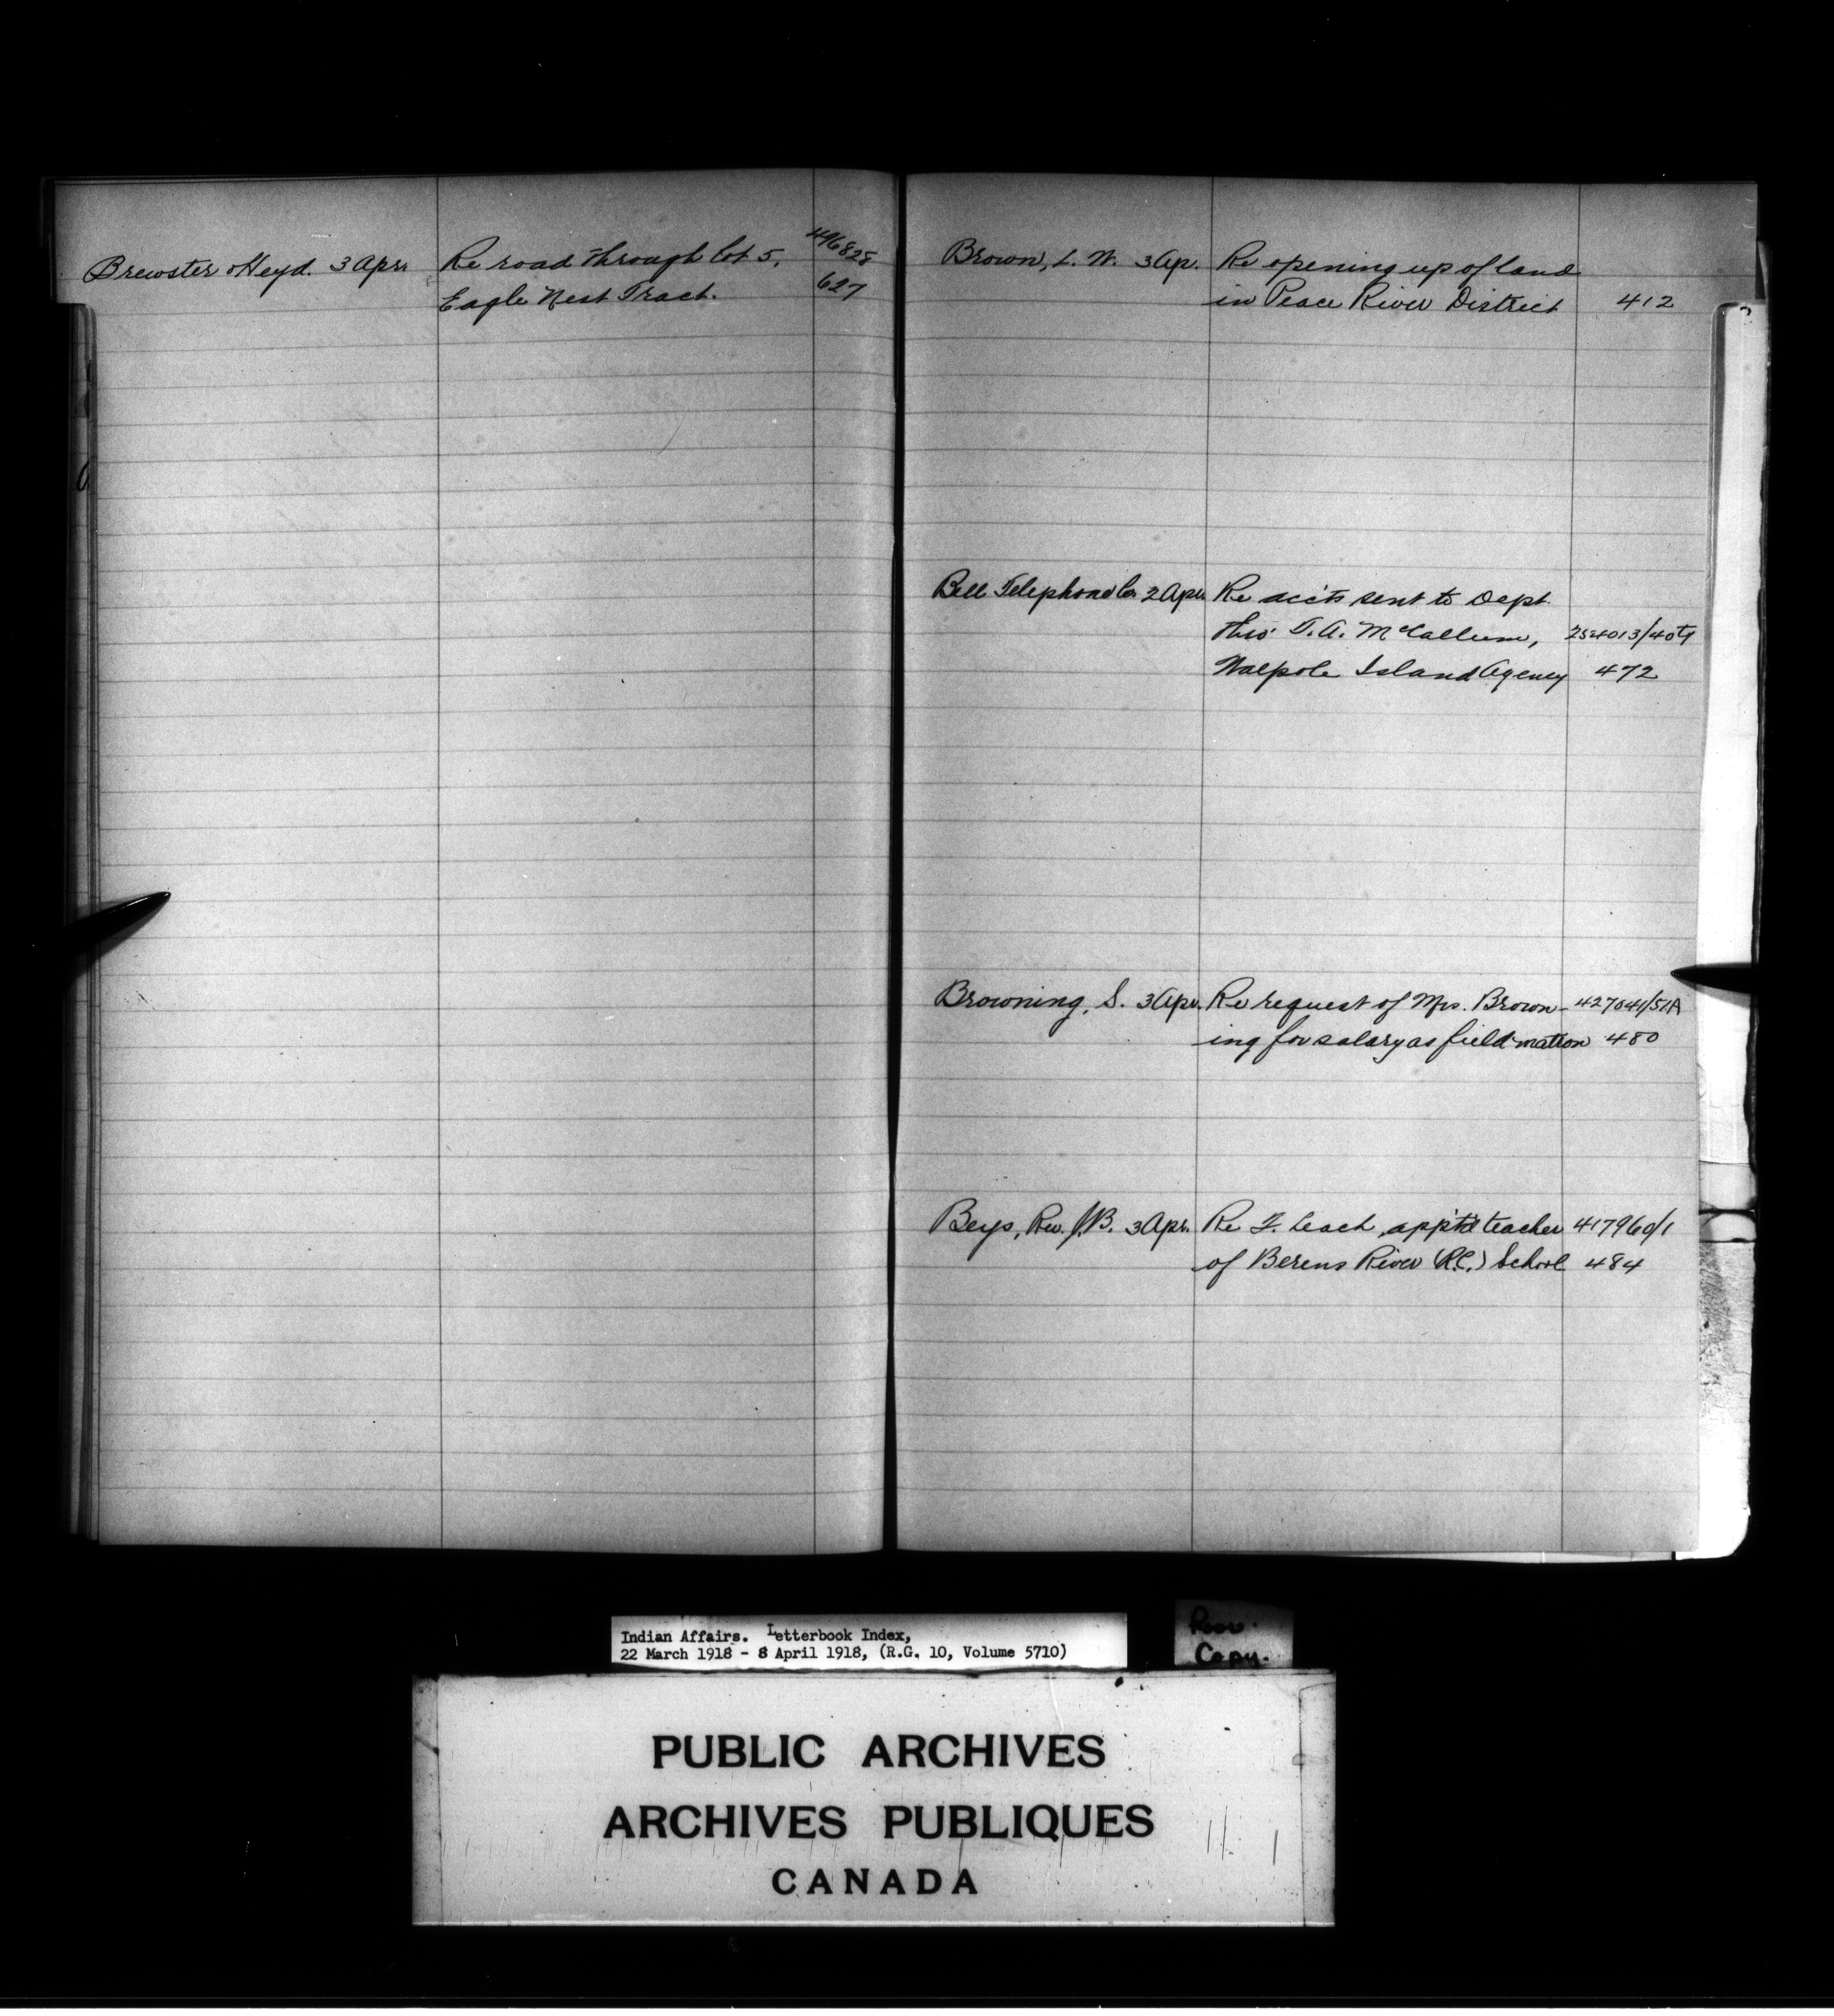 Brewster & Heyd. 3 Apr. Re road through lot 5, 496828
Eagle Nest Tract. 627
Brown, L. W. 3 Ap. Re opening up of land
in Peace River District 412
Bell Telephone Co. 2 Apr. Re acc'ts sent to Dept.
thro' T. A. McCallum, 254013/40
Walpole Island Agency 472
Browning, S. 3 Apr. Re request of Mrs. Brown- 427041/51A
ing for salary as field matron 480
Beys, Rev. J. B. 3 Apr. Re F. Leach, appt'd teacher 417960/1
of Berens River (R.C.) School 484
Indian Affairs. Letterbook Index,
22 March 1918 - 8 April 1918, (R.G. 10, Volume 5710)
Poor
Copy.
PUBLIC ARCHIVES
ARCHIVES PUBLIQUES
CANADA